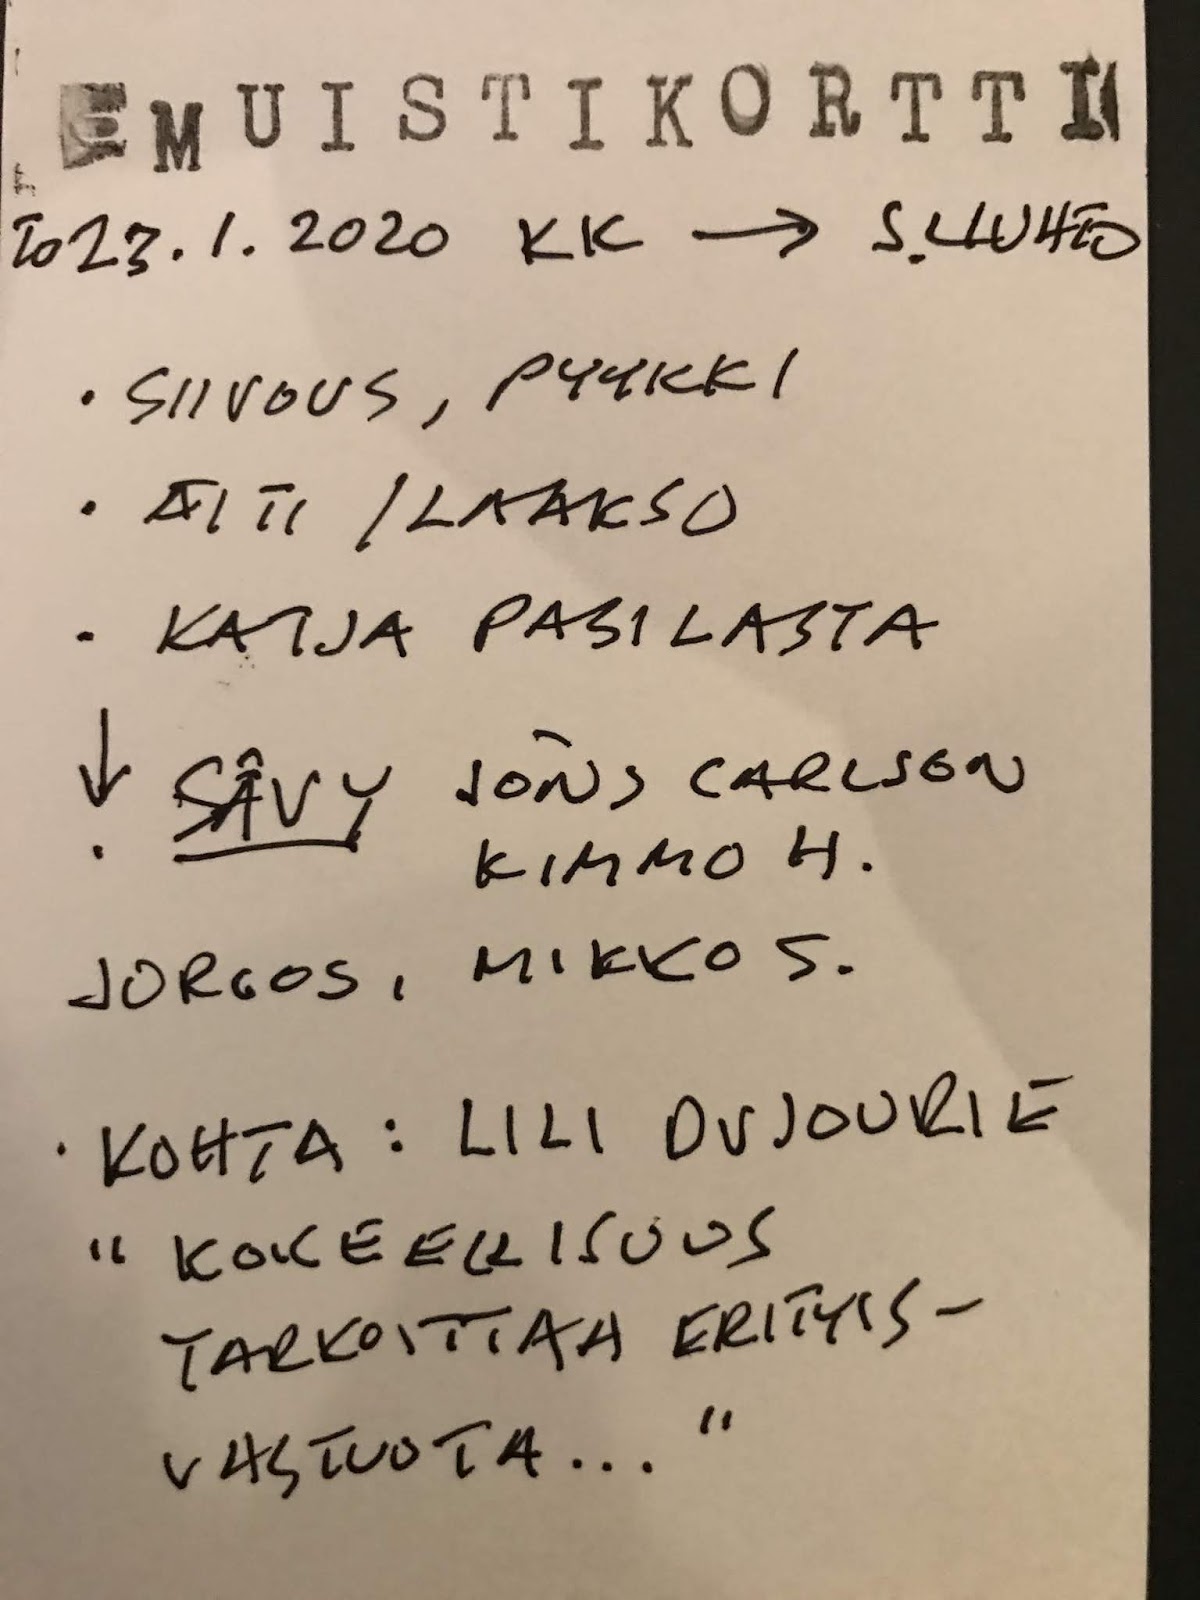 EMUISTIKORTTI
TO 23.1.2020 KK → S.LUHTO
· SIIVOUS, PYYKKI
· ÄITI / LAAKSO
· KATJA PASILASTA
↓ SÄVY JÖNS CARLSON
· KIMMO H.
JORGOS, MIKKO S.
· KOHTA: LILI DUJOURIE
"KOKEELLISUUS
TARKOITTAA ERITYIS-
VASTUOTA..."